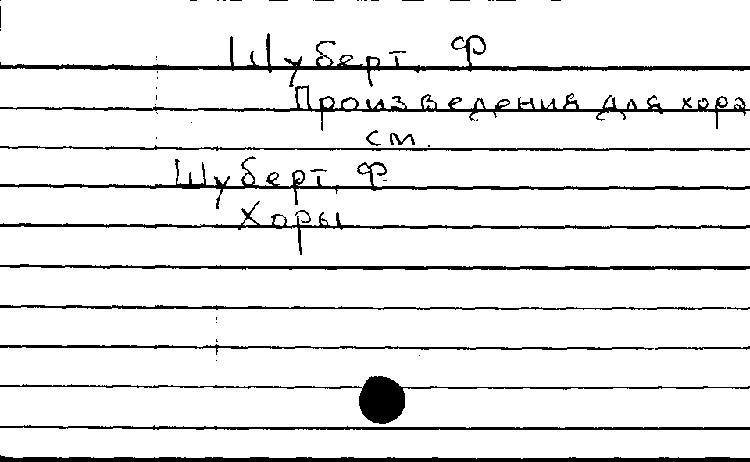 Шуберт, Ф
Произведения для хора
см.
Шуберт, Ф.
Хоры